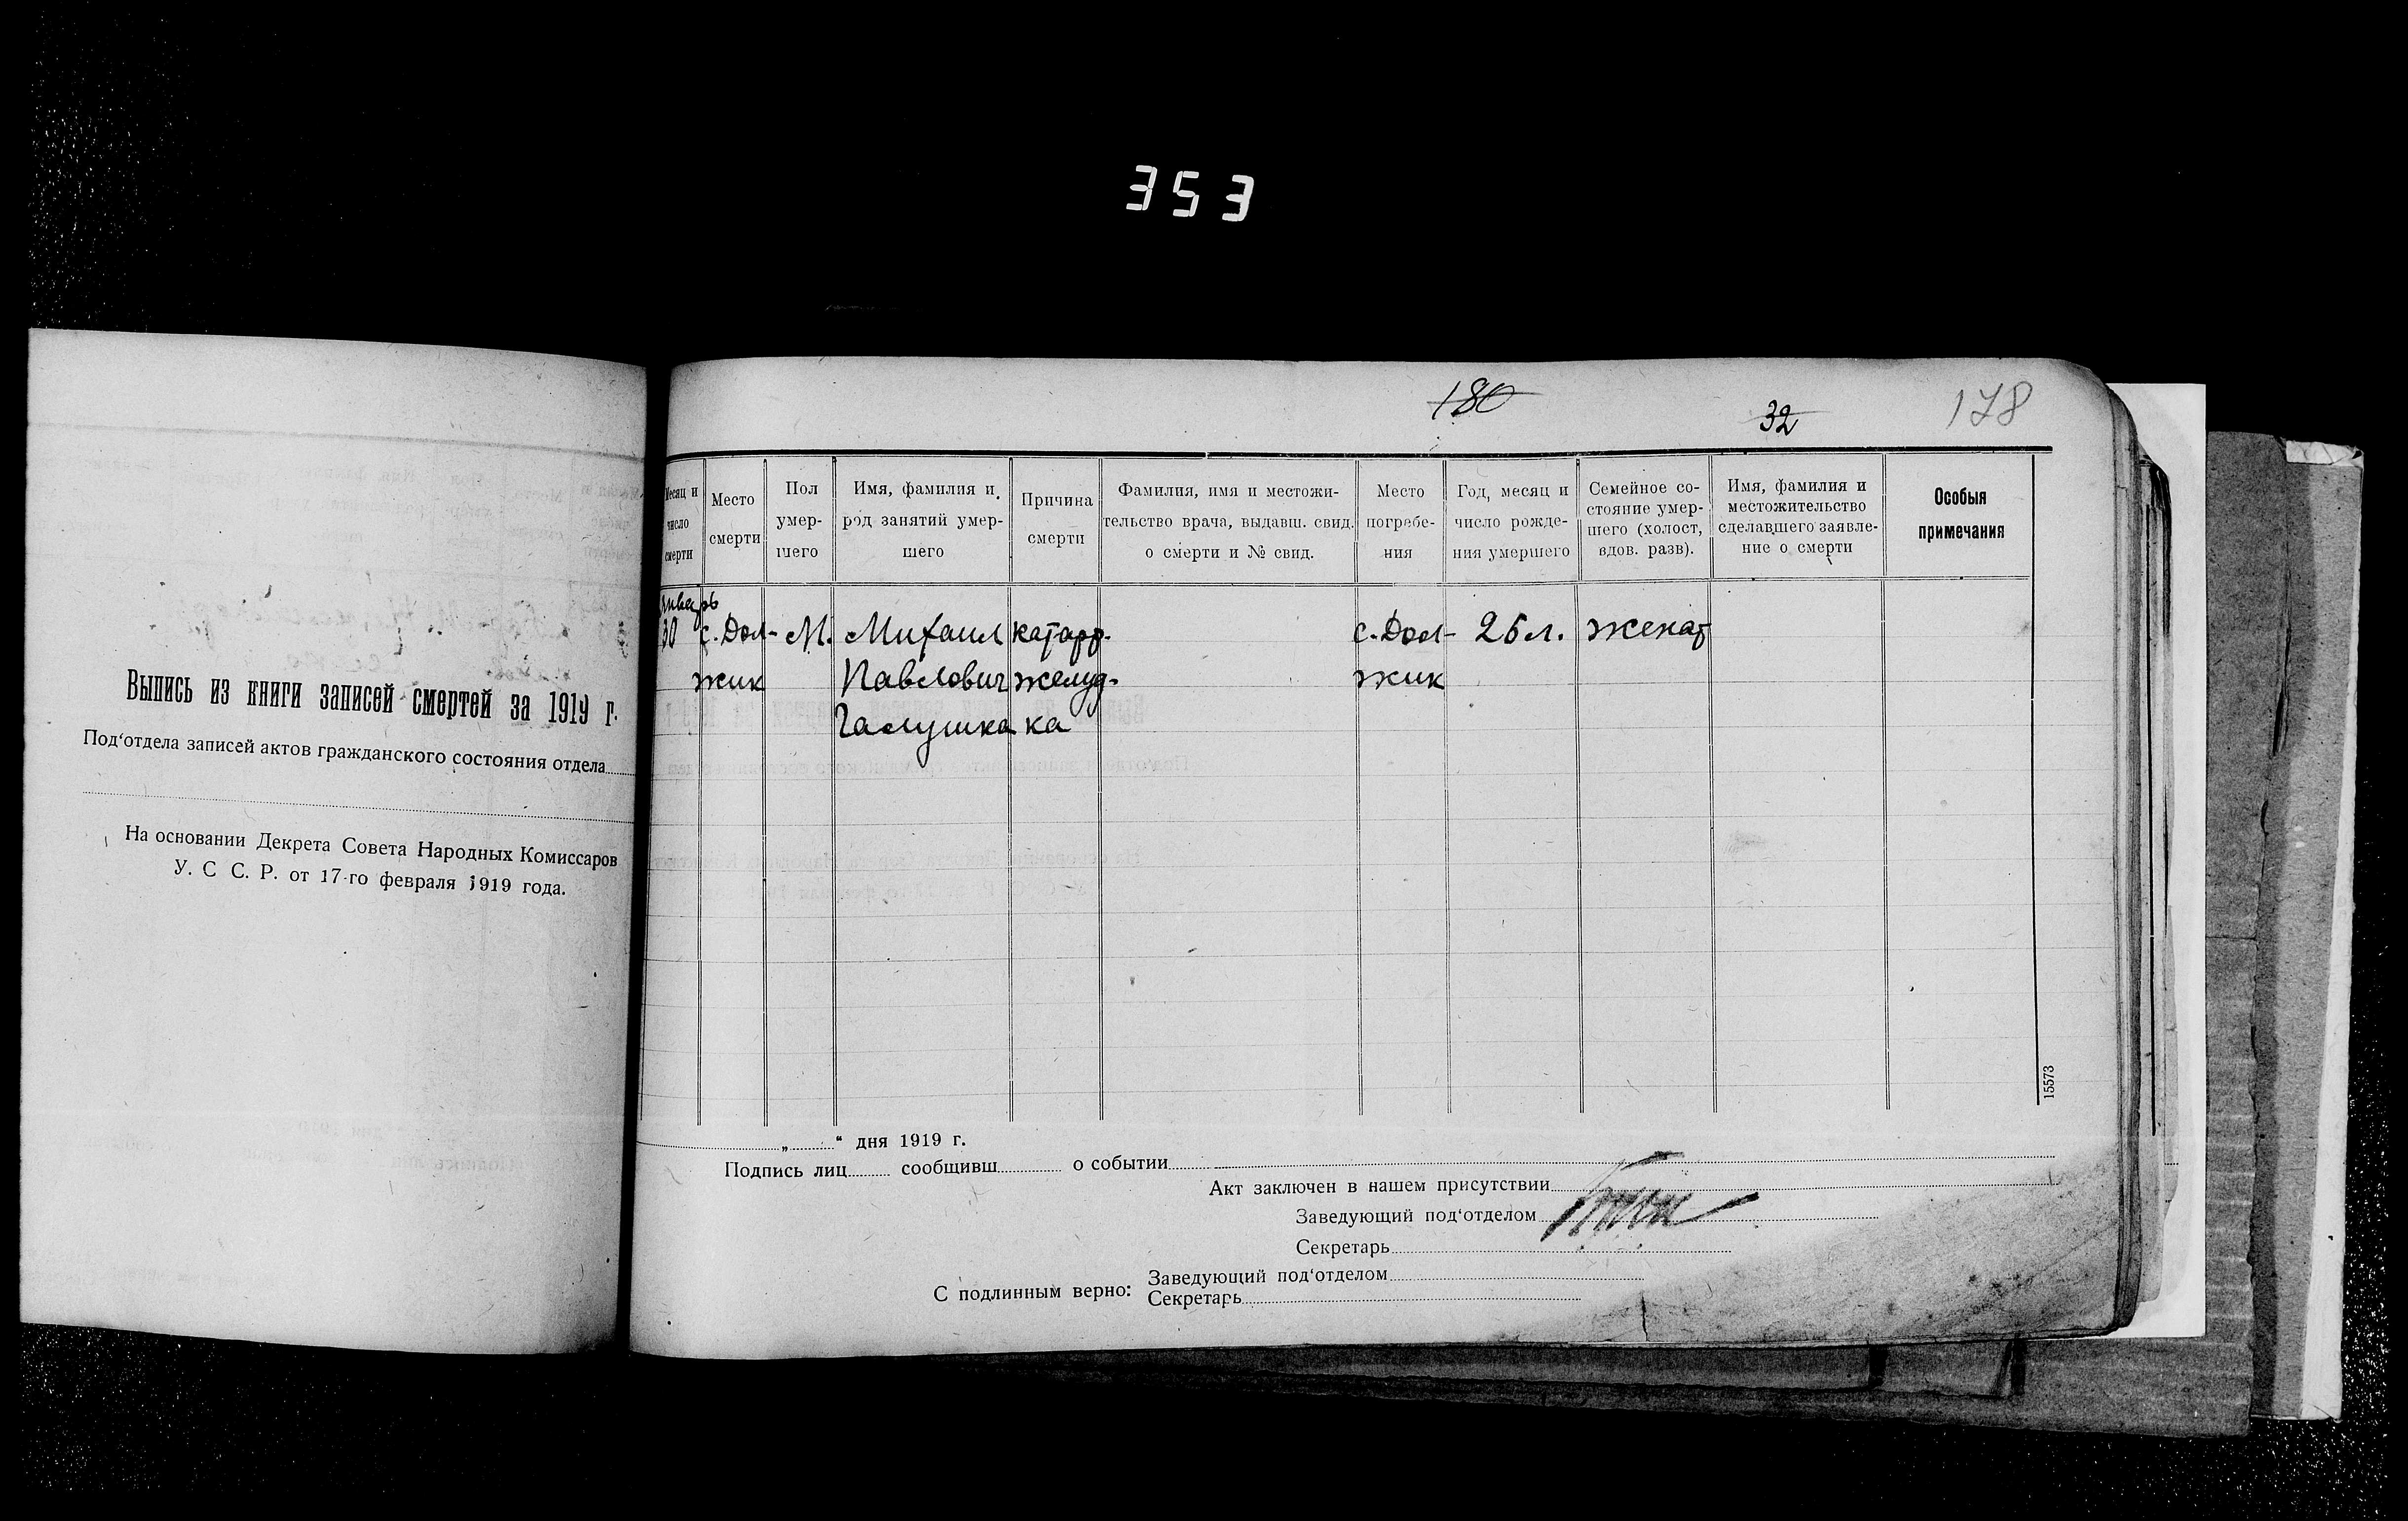 353
Выпись из книги записей смертей за 1919 г.
Под‘отдела записей актов гражданского состояния отдела
На основании Декрета Совета Народных Комиссаров
У. С С. Р. от 17-го февраля 1919 года.
180
32
178
Месяц и число смерти
Место смерти
Пол умер-шего
Имя, фамилия и род занятий умер-шего
Причина смерти
Фамилия, имя и местожи-тельство врача, выдавш. свид. о смерти и № свид.
Место погребе-ния
Год, месяц и число рожде-ния умершего
Семейное со-стояние умер-шего (холост, вдов. разв).
Имя, фамилия и местожительство сделавшего заявле-ние о смерти
Особыя примечания
Январь
30 с. Дол- М. Михаил катарр. с. Дол- 26 л. женат
жик Павлович желуд- жик
Галушка ка
15573
„ “ дня 1919 г.
Подпись лиц сообщивш о событии
Акт заключен в нашем присутствии
Заведующий под‘отделом
Секретарь
С подлинным верно: Заведующий под‘отделом
Секретарь